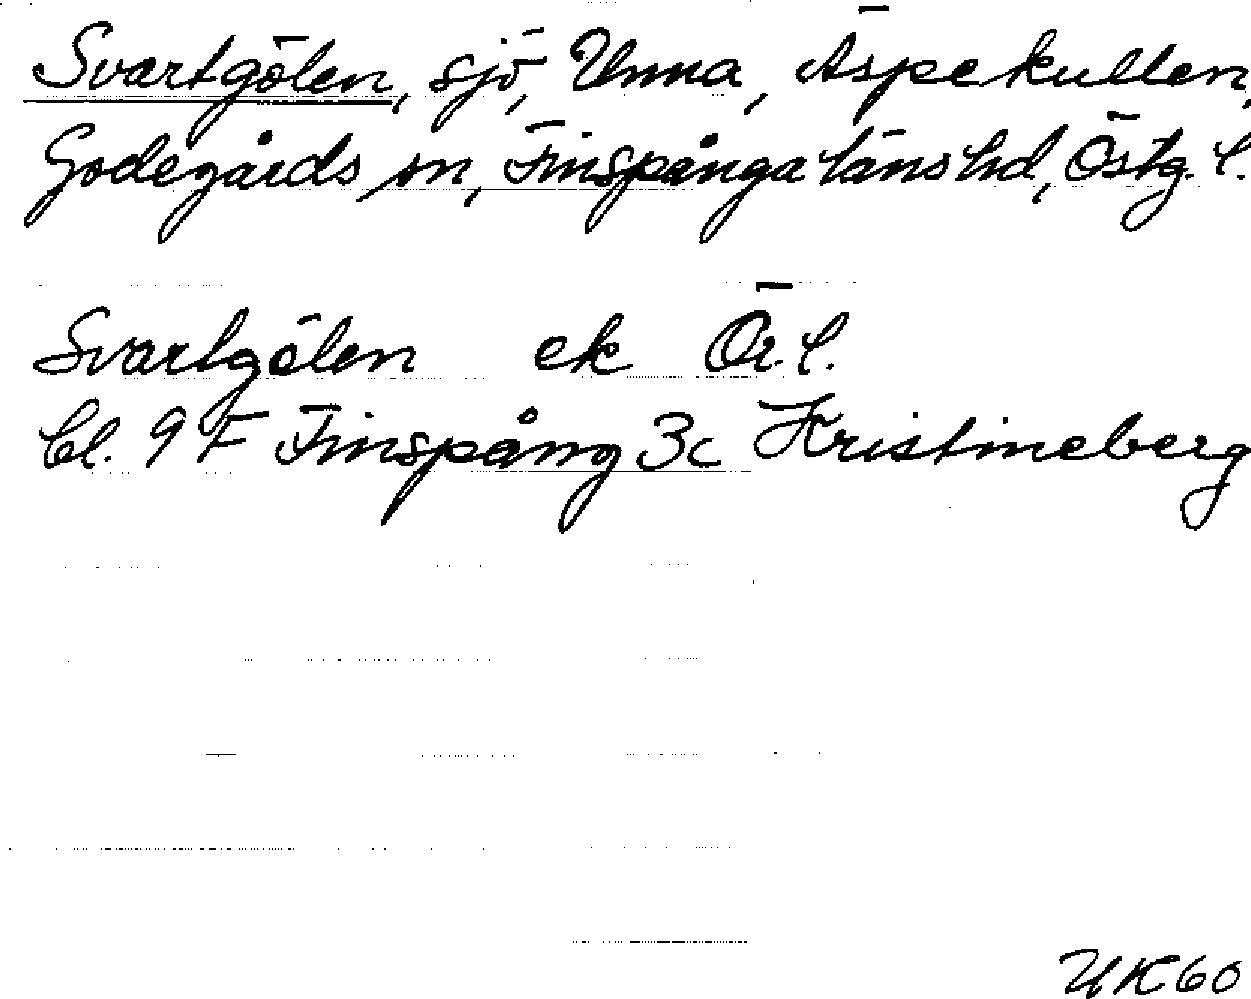 Svartgölen, sjö, Unna, Äspekullen,
Godegårds sn, Finspånga läns hd, Östg. l.
Svartgölen ek Ör. l.
bl. 9 F Finspång 3c Kristineberg
UK60